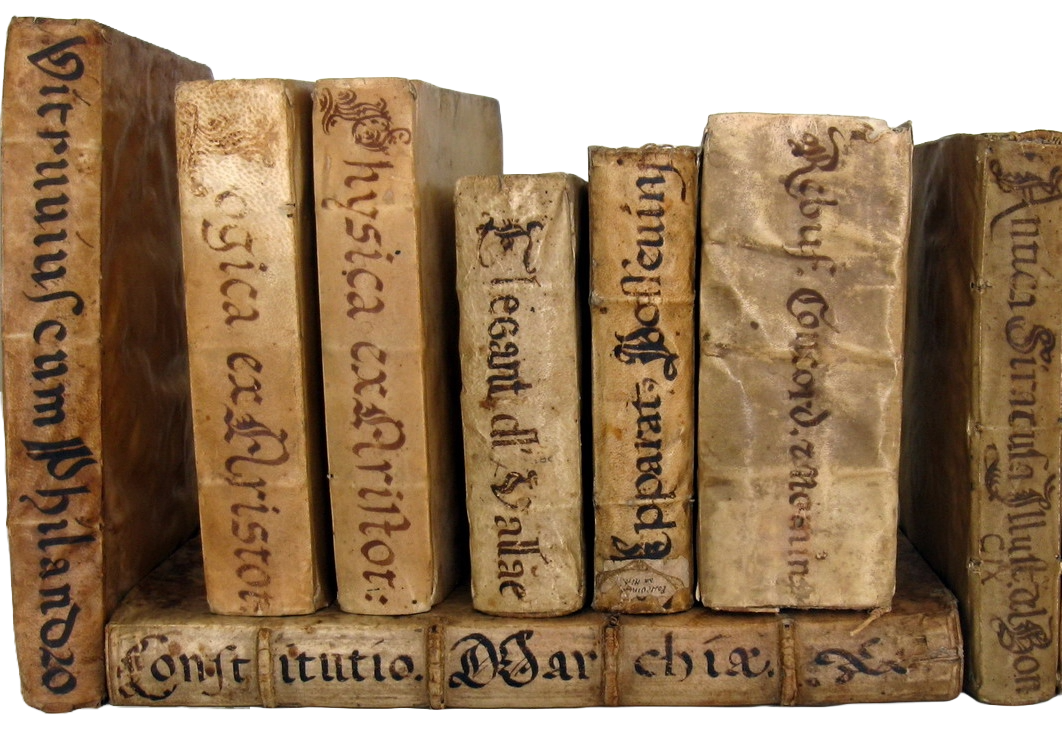 Vitruuius cum Philandro
Logica ex Aristot
Physica ex Aristot:
Elegant d' Vallae
Apparat, Posseuini
Rebuf. Concord.
Antica Siracusa Illust. al Bon
Constitutio. Mar chiæ.